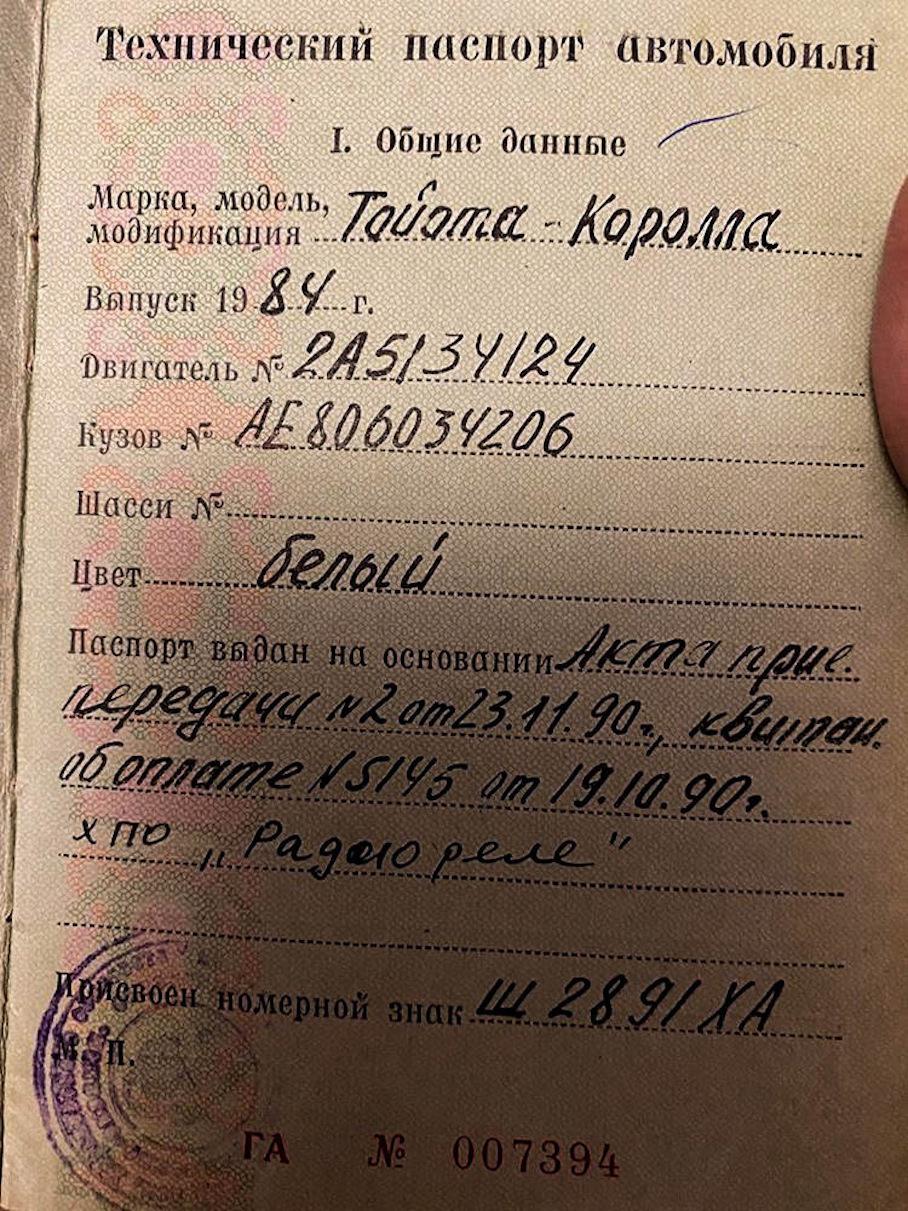 Технический паспорт автомобиля
I. Общие данные
Марка, модель,
модификация Тойота - Королла
Выпуск 19 84 г.
Двигатель № 2А5134124
Кузов № АЕ806034206
Шасси №
Цвет белый
Паспорт выдан на основании Акта прие.
передачи №2 от 23.11.90г., квитан.
об оплате №5145 от 19.10.90г.
ХПО „Радиореле"
Присвоен номерной знак Ш 2891 ХА
М. П.
ГА № 007394